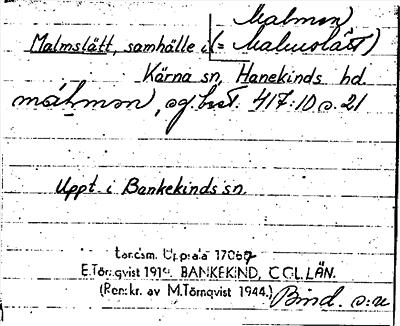 Malmon)
Malmslätt, samhälle i (= Malmslätt)
Kärna sn, Hanekinds hd.
måḥmon), og. best. 417:10 s. 21
Uppt. i Bankekinds sn.
Landsm. Uppsala 1706
E. Törnqvist 1919. BANKEKIND, ÖGL. LÄN.
(Renskr. av M. Törnqvist 1944.) Bind. s:n